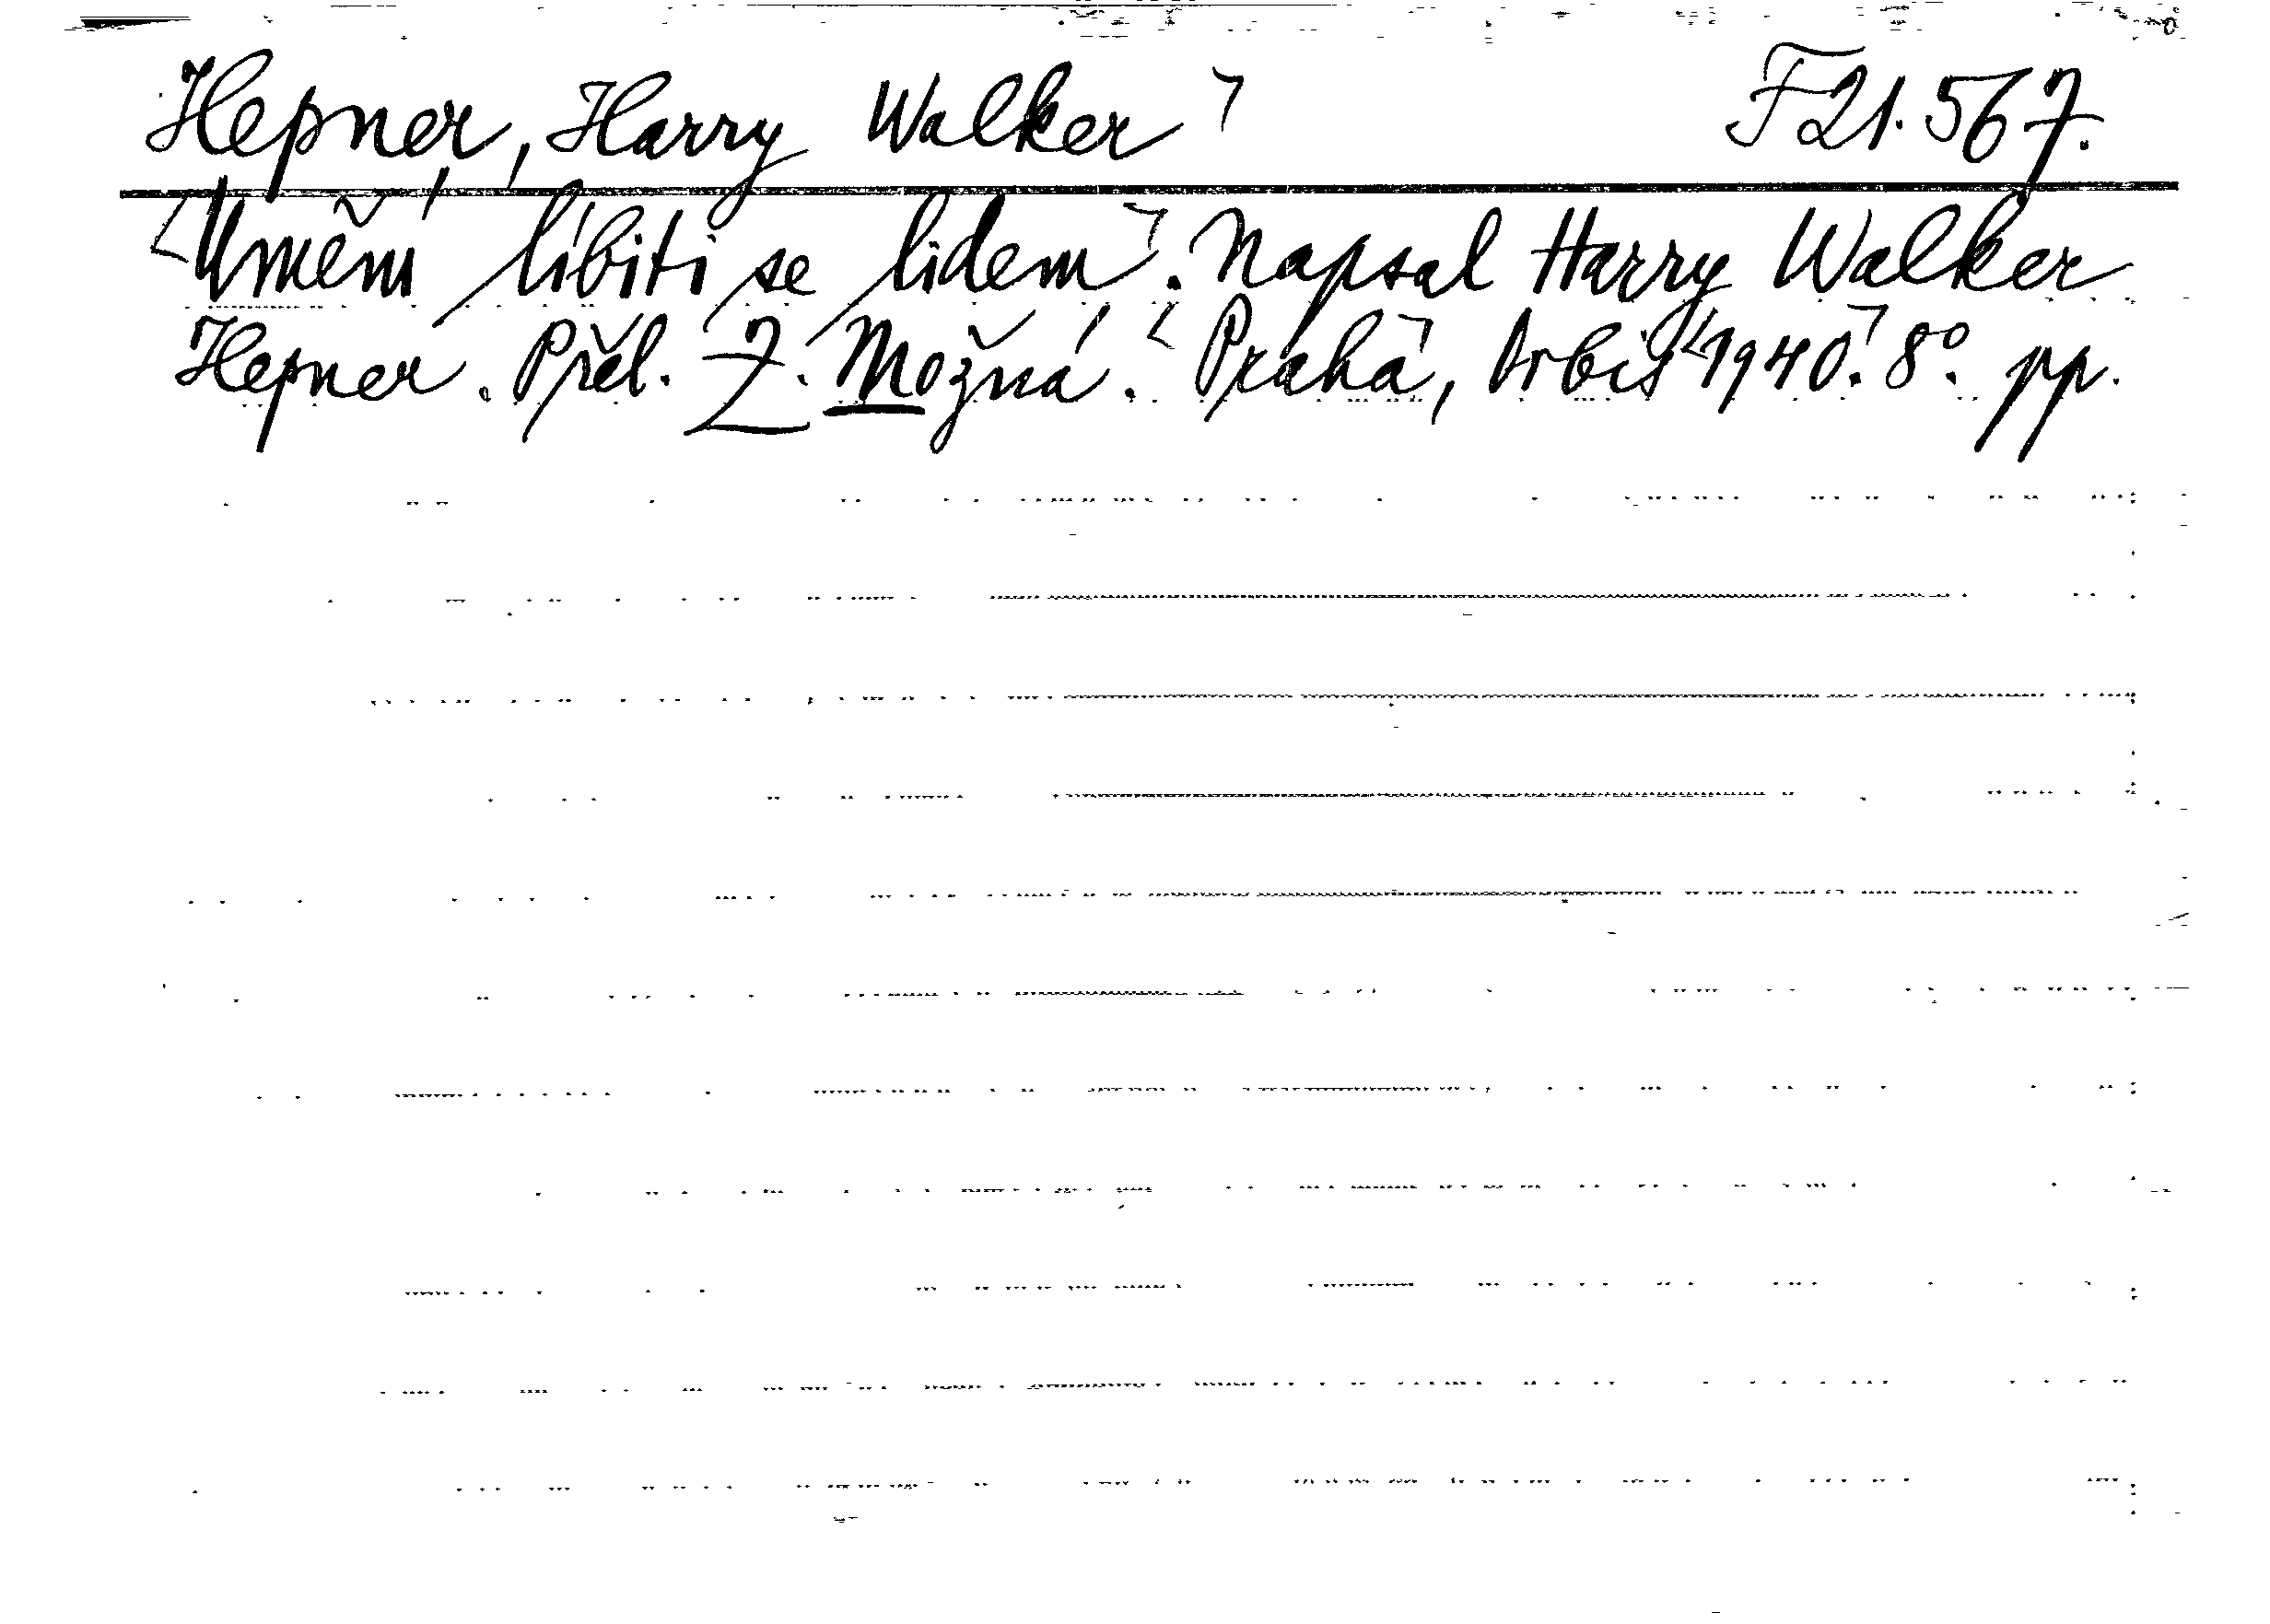 Hepner, Harry Walker F 21.567.
Umění líbiti se lidem. Napsal Harry Walker
Hepner. Přel. Z. Možná. Praha, Orbis 1940. 8°. pp.